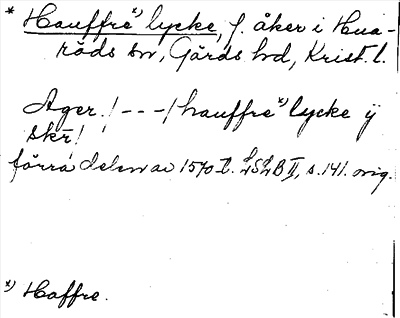 * Hauffre*) lycke, f. åker i Hua-
röds sn, Gärds hd, Krist. l.
Ager. ! - - - / hauffre*) lycke ÿ
skr!
förra delen av 1570 t. LSLB II, s. 141. orig.
*) Haffre.